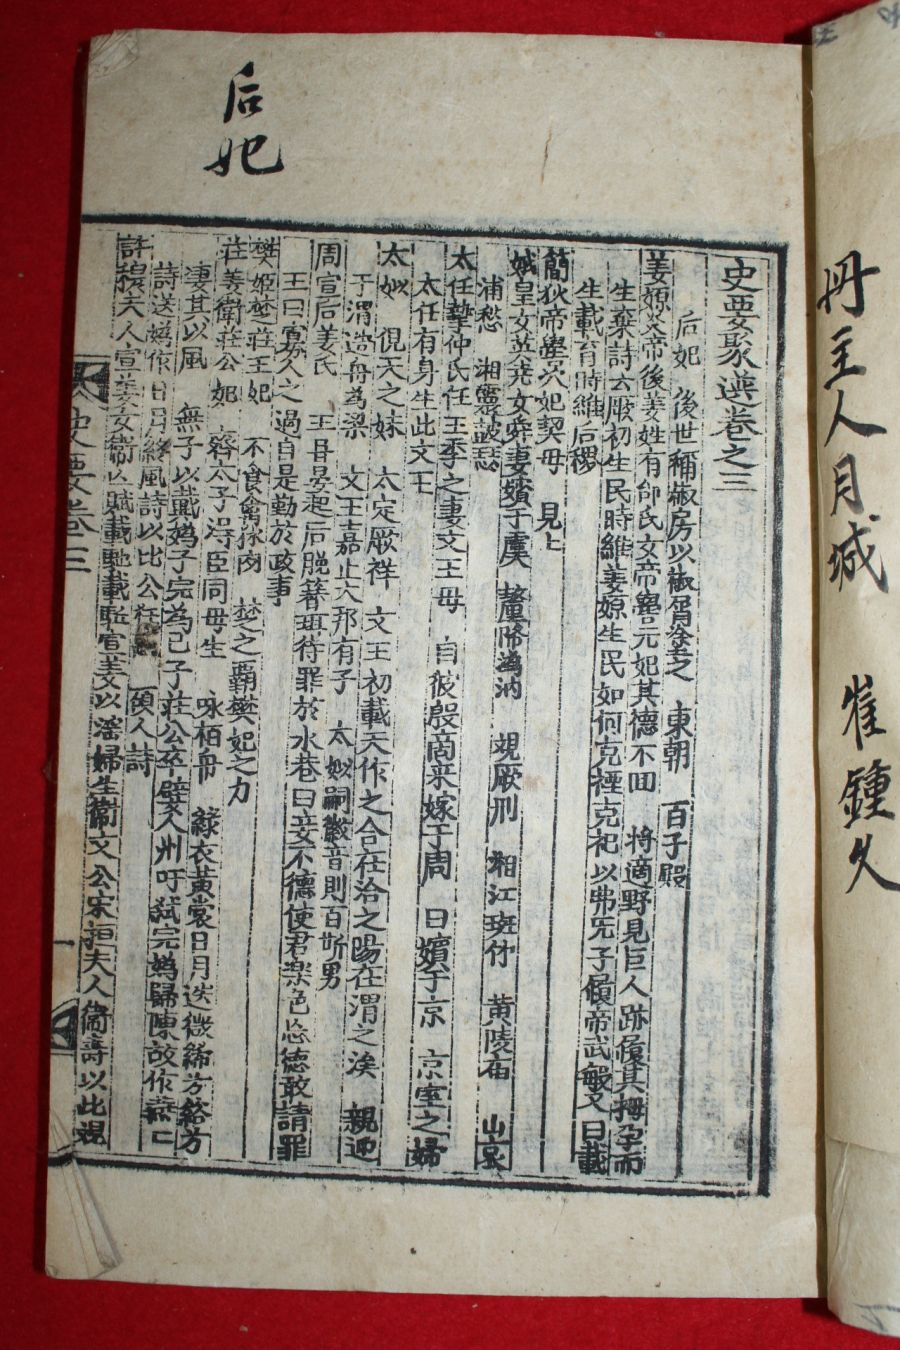 冊主人月城 崔鍾久
后妃
史要聚選卷之三
后妃 後世稱椒房以椒屑塗之 東朝 百子殿
姜嫄炎帝後姜姓有邰氏女帝嚳元妃其德不回 將適野見巨人跡履其拇孕而
生棄詩云厥初生民時維姜嫄生民如何克禋克祀以弗无子履帝武敏又曰載
生載育時維后稷
簡狄帝嚳次妃契母 見上
娥皇女英堯女舜妻嬪于虞 釐降溈汭 覌厥刑 湘江班竹 黄陵 山哀
浦愁 湘靈鼓瑟
太任摯仲氏任王季之妻文王母 自彼殷商来嫁于周 曰嬪于京 京室之婦
太任有身生此文王
太姒 俔天之妹 太定厥祥 文王初載天作之合在洽之陽在渭之涘 親迎
于渭造舟為梁 文王嘉止大邦有子 太姒嗣徽音則百斯男
周宣后姜氏 王甞晏起后脱簪珥待罪於永巷曰妾不德使君樂色忘德敢請罪
王曰寡人之過自是勤於政事
樊姬楚莊王妃 不食禽獸肉 楚之覇樊妃之力
莊姜衛莊公妃 齊太子淂臣同母生 咏栢舟 綠衣黃裳日月迭微絺兮綌兮
凄其以風 無子以戴嬀子完為己子莊公卒嬖人州吁弑完嬀歸陳故作燕燕
詩送嬀作日月終風詩以比公 碩人詩
許穆夫人宣姜女衛 賦載馳載駈宣姜以淫婦生衛文公宋桓夫人衛壽以此覌
史要卷三
一